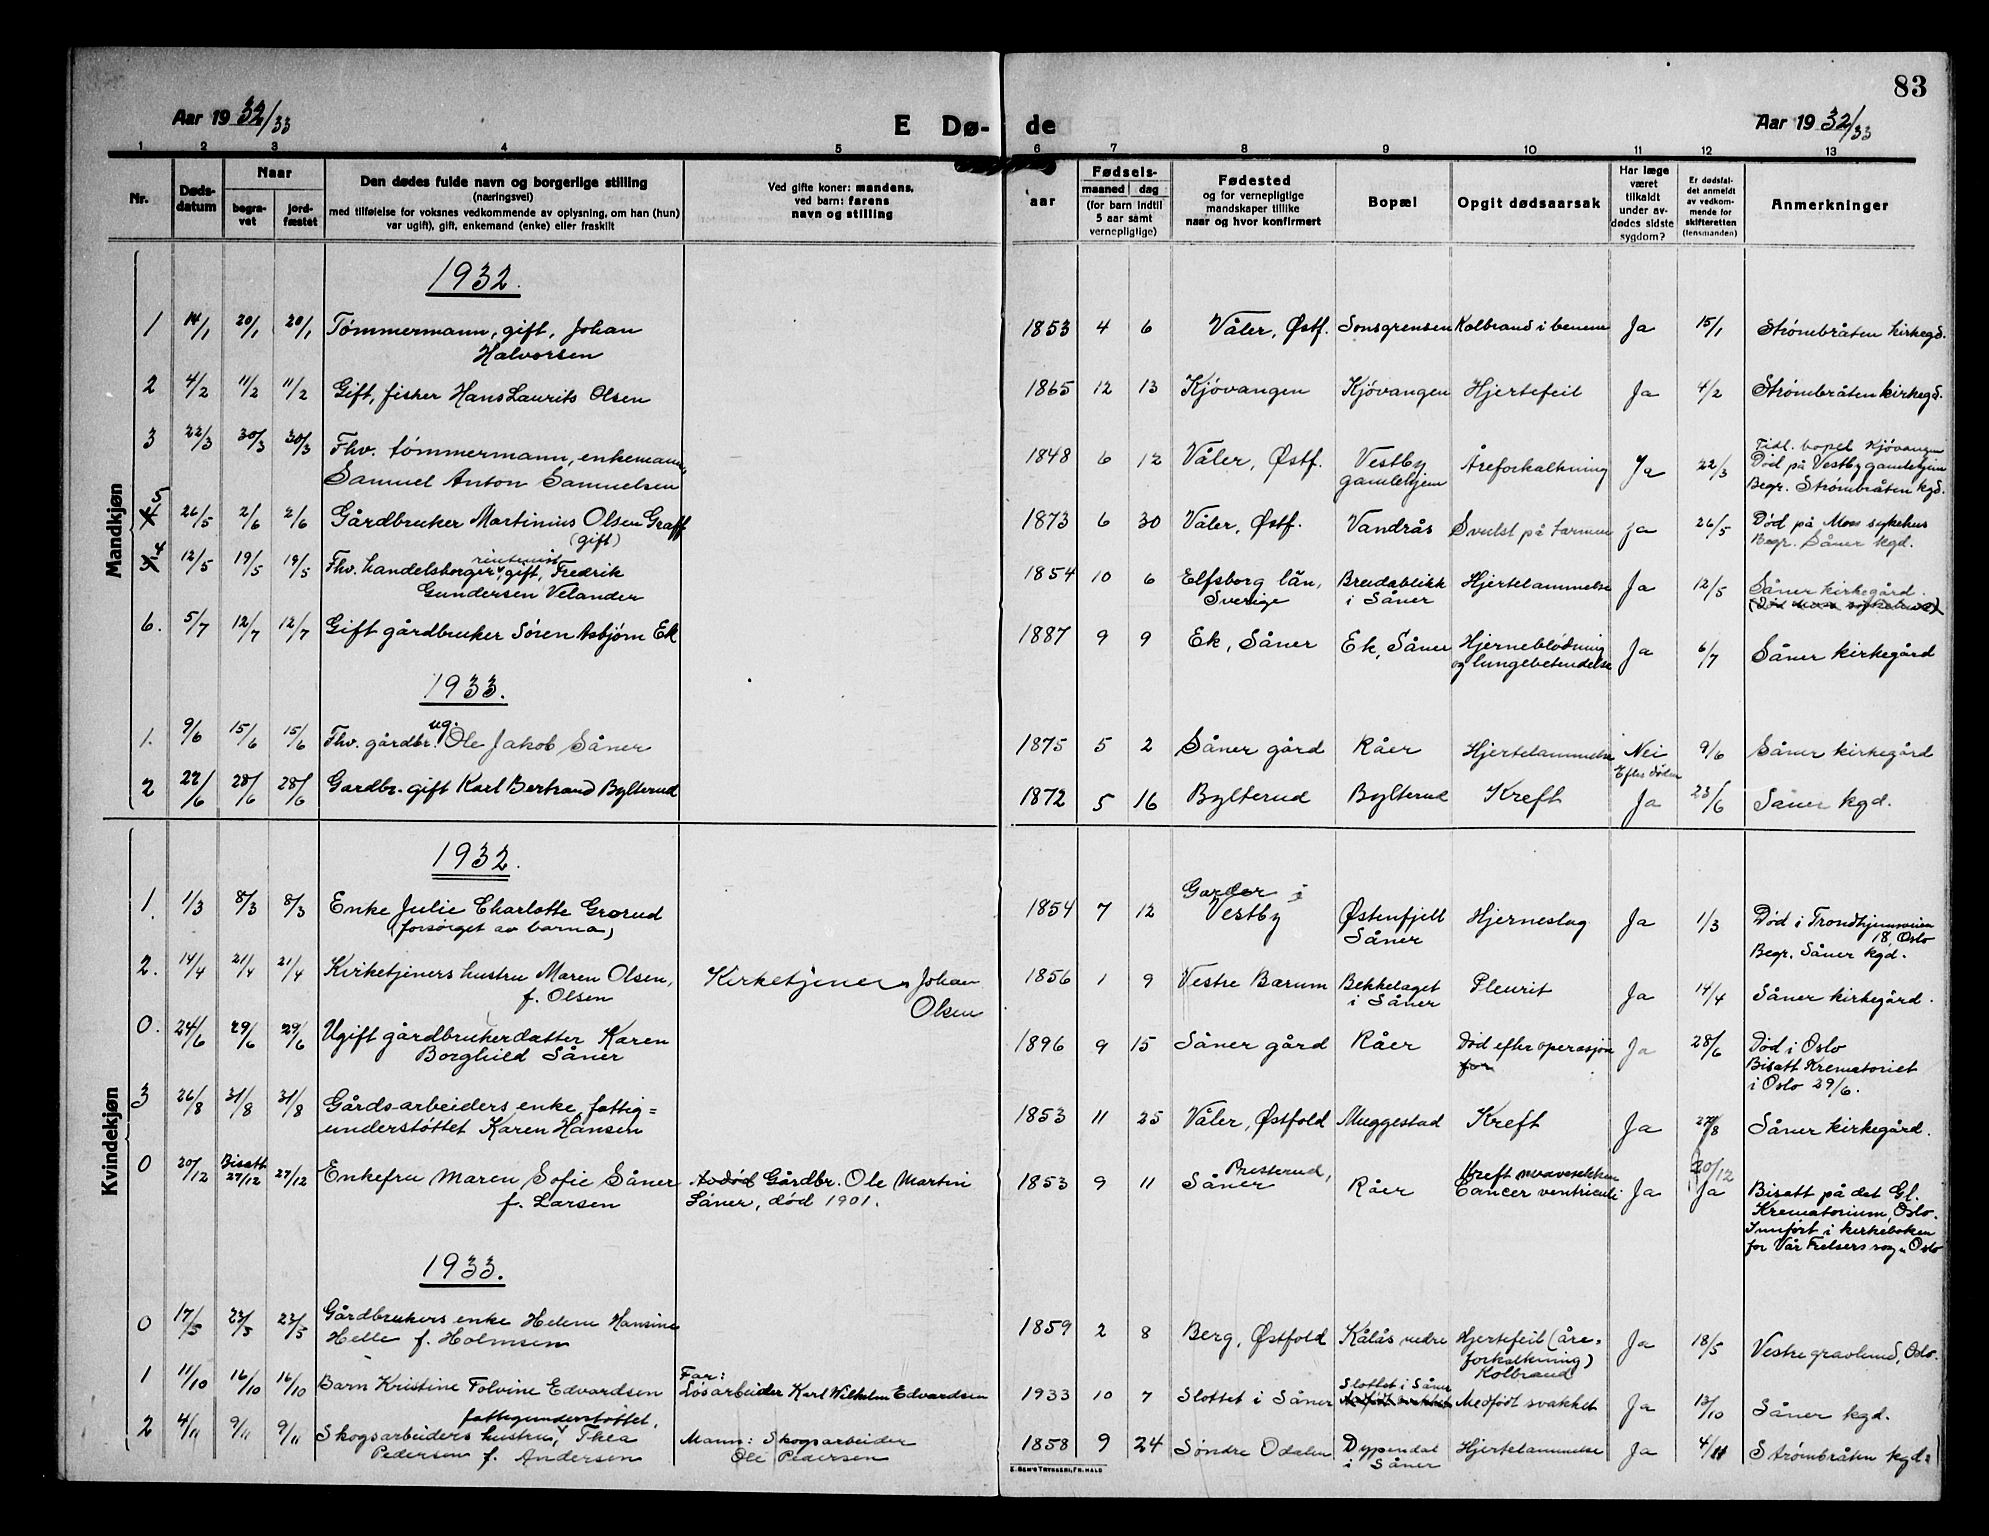 83
Aar 1932/33
E Dø-
de
Aar 1932/33
1 2 3 4 5 6 7 8 9 10 11 12 13
Nr.
Døds-
datum
Naar
begra-
vet
jord-
fæstet
Den dødes fulde navn og borgerlige stilling
(næringsvei)
med tilføielse for voksnes vedkommende av oplysning, om han (hun)
var ugift), gift, enkemand (enke) eller fraskilt
Ved gifte koner: mandens,
ved barn: farens
navn og stilling
aar
Fødsels-
maaned dag
(for barn indtil
5 aar samt
vernepligtige)
Fødested
og for vernepligtige
mandskaper tillike
naar og hvor konfirmert
Bopæl
Opgit dødsaarsak
Har læge
været
tilkaldt
under av-
dødes sidste
sygdom?
Er dødsfal-
det anmeldt
av vedkom-
mende for
skifteretten
(lensmanden)
Anmerkninger
Mandkjøn
1932.
1 14/1 20/1 20/1 Tømmermann, gift, Johan
Halvorsen
1853 4 6 Våler, Østf. Sonsgrensen Kolbrand i benene Ja 15/1 Strømbråten kirkegd.
2 4/2 11/2 11/2 Gift, fisker Hans Laurits Olsen
1865 12 13 Kjøvangen Kjøvangen Hjertefeil Ja 4/2 Strømbråten kirkegd.
3 22/3 30/3 30/3 Fhv. tømmermann, enkemann
Samuel Anton Samuelsen
1848 6 12 Våler, Østf. Vestby
gamlehjem
Åreforkalkning Ja 22/3
Tidl. bopel Kjøvangen
Død på Vestby gamlehjem
Begr. Strømbråten kgd.
5 26/5 2/6 2/6 Gårdbruker Martinius Olsen Graff
(gift)
1873 6 30 Våler, Østf. Vandrås Svulst på tarmene Ja 26/5 Død på Moss sykehus
Begr. Såner kgd.
4 12/5 19/5 19/5 Fhv. handelsborger, rentenist gift, Fredrik
Gundersen Velander
1854 10 6 Elfsborg län,
Sverige
Breidablikk
i Såner
Hjertelammelse Ja 12/5 Såner kirkegård.
(Død Moss sykehus)
6. 5/7 12/7 12/7 Gift gårdbruker Søren Asbjørn Ek
1887 9 9 Ek, Såner Ek, Såner Hjerneblødning
og lungebetendelse
Ja 6/7 Såner kirkegård
1933.
1. 9/6 15/6 15/6 Fhv. gårdbr. ug. Ole Jakob Såner
1875 5 2 Såner gård Råer Hjertelammelse Nei
Efter døden
9/6 Såner kirkegård
2 22/6 28/6 28/6 Gardbr. gift Karl Bertrand Bylterud
1872 5 16 Bylterud Bylterud Kreft Ja 23/6 Såner kgd.
Kvindekjøn
1932.
1. 1/3 8/3 8/3 Enke Julie Charlotte Grorud
(forsørget av barna)
1854 7 12 Garder i
Vestby
Østenfjell
Såner
Hjerneslag Ja 1/3 Død i Trondhjemsveien
18, Oslo
Begr. Såner kgd.
2. 14/4 21/4 21/4 Kirketjeners hustru Maren Olsen,
f. Olsen
Kirketjener Johan
Olsen
1856 1 9 Vestre Bærum Bekkelaget
i Såner
Pleurit Ja 14/4 Såner kirkegård.
0. 24/6 29/6 29/6 Ugift gårdbrukerdatter Karen
Borghild Såner
1896 9 15 Såner gård Råer Død efter operasjon
for
Ja 28/6 Død i Oslo
Bisatt Krematoriet
i Oslo 29/6.
3 26/8 31/8 31/8 Gårds-arbeiders enke, fattig=
understøttet Karen Hansen
1853 11 25 Våler, Østfold Muggestad Kreft Ja 27/8 Såner kirkegård.
0 20/12 Bisatt 27/12 27/12 Enkefru Maren Sofie Såner
f. Larsen
Avdød Gårdbr. Ole Martin
Såner, død 1901.
1853 9 11 Presterud,
Såner
Råer Kreft mavesekken
Cancer ventriculi
Ja 20/12
Ja
Bisatt på det Gl.
Krematorium, Oslo.
Innført i kirkeboken
for Vår Frelsers sogn Oslo
1933.
0 17/5 23/5 23/5 Gårdbrukers enke Helene Hansine
Helle f. Holmsen
1859 2 8 Berg, Østfold Kålås nedre Hjertefeil (åre=
forkalkning)
Kolbrand
Ja 18/5 Vestre gravlund, Oslo.
1 11/10 16/10 16/10 Barn Kristine Tolvine Edvardsen
Far:
Løsarbeider Karl Wilhelm Edvardsen
1933 10 7 Slottet i Såner Slottet i Såner Medfødt svakhet Ja 13/10 Såner kgd.
2 4/11 9/11 9/11 Skogsarbeiders hustru, fattigunderstøttet, Thea
Pedersen f. Andersen
Mann: Skogsarbeider
Ole Pedersen
1858 9 24 Søndre Odalen Dypendal
i Såner
Hjertelammelse Ja 4/11 Strømbråten kgd.